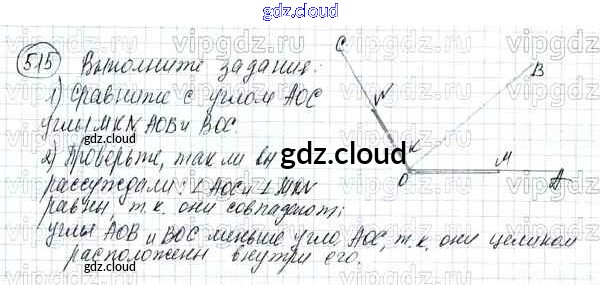 gdz.cloud
515 Выполните задания:
1) Сравните с углом AOC
углы MKN, AOB и BOC.
2) Проверьте, так ли вы
gdz.cloud
рассуждали: ∠AOC и ∠MKN
равны, т.к. они совпадают;
углы AOB и BOC меньше угла AOC, т.к. они целиком
расположены внутри его.
C
B
N
K
O
M
A
vipgdz.ru
gdz.cloud